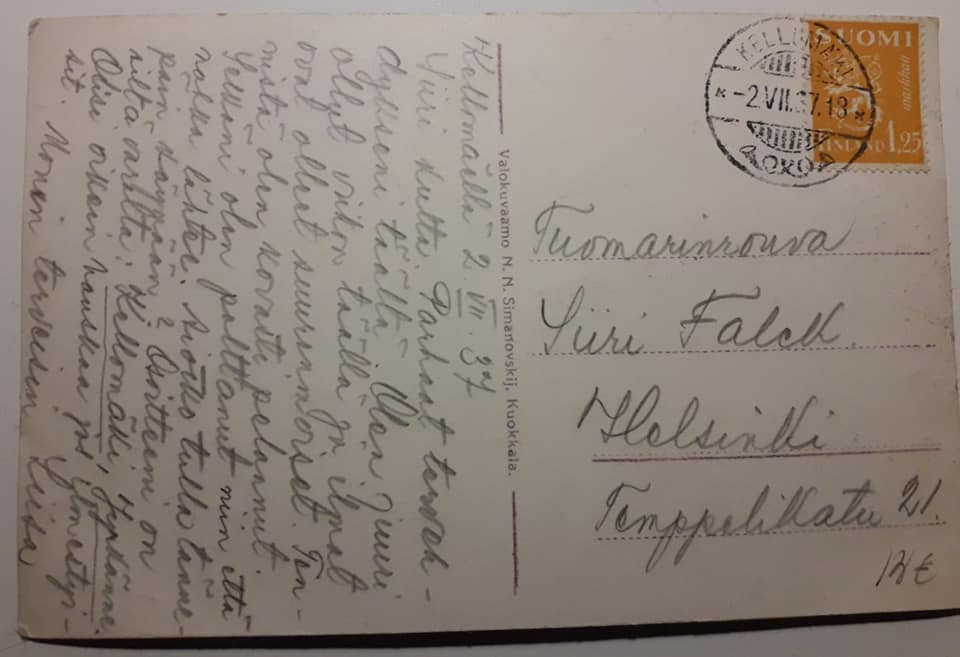 Kellomäellä 2 VII. 37
Siiri kulta. Parhaat terveh-
dykseni täältä. Olen juuri
ollut viikon täällä ja ilmat
ovat olleet suurenmoiset. Ten-
nistä olen kovasti pelannut
Selkäni olen polttanut niin että
nahka lähtee. Aiotko tulla tänne-
päin käymään? Osoitteeni on
siltä varalta: Kellomäki,
Olisi oikein hauskaa jos ilmestyi-
sit. Monin terveisin Liisa
Valokuvaamo N. N. Simanovskij. Kuokkala.
KELLOMÄKI
-2.VII.37.18
SUOMI
markkaa
FINLAND 1,25
Tuomarinrouva
Siiri Falck.
Helsinki
Temppelikatu 21.
12 €